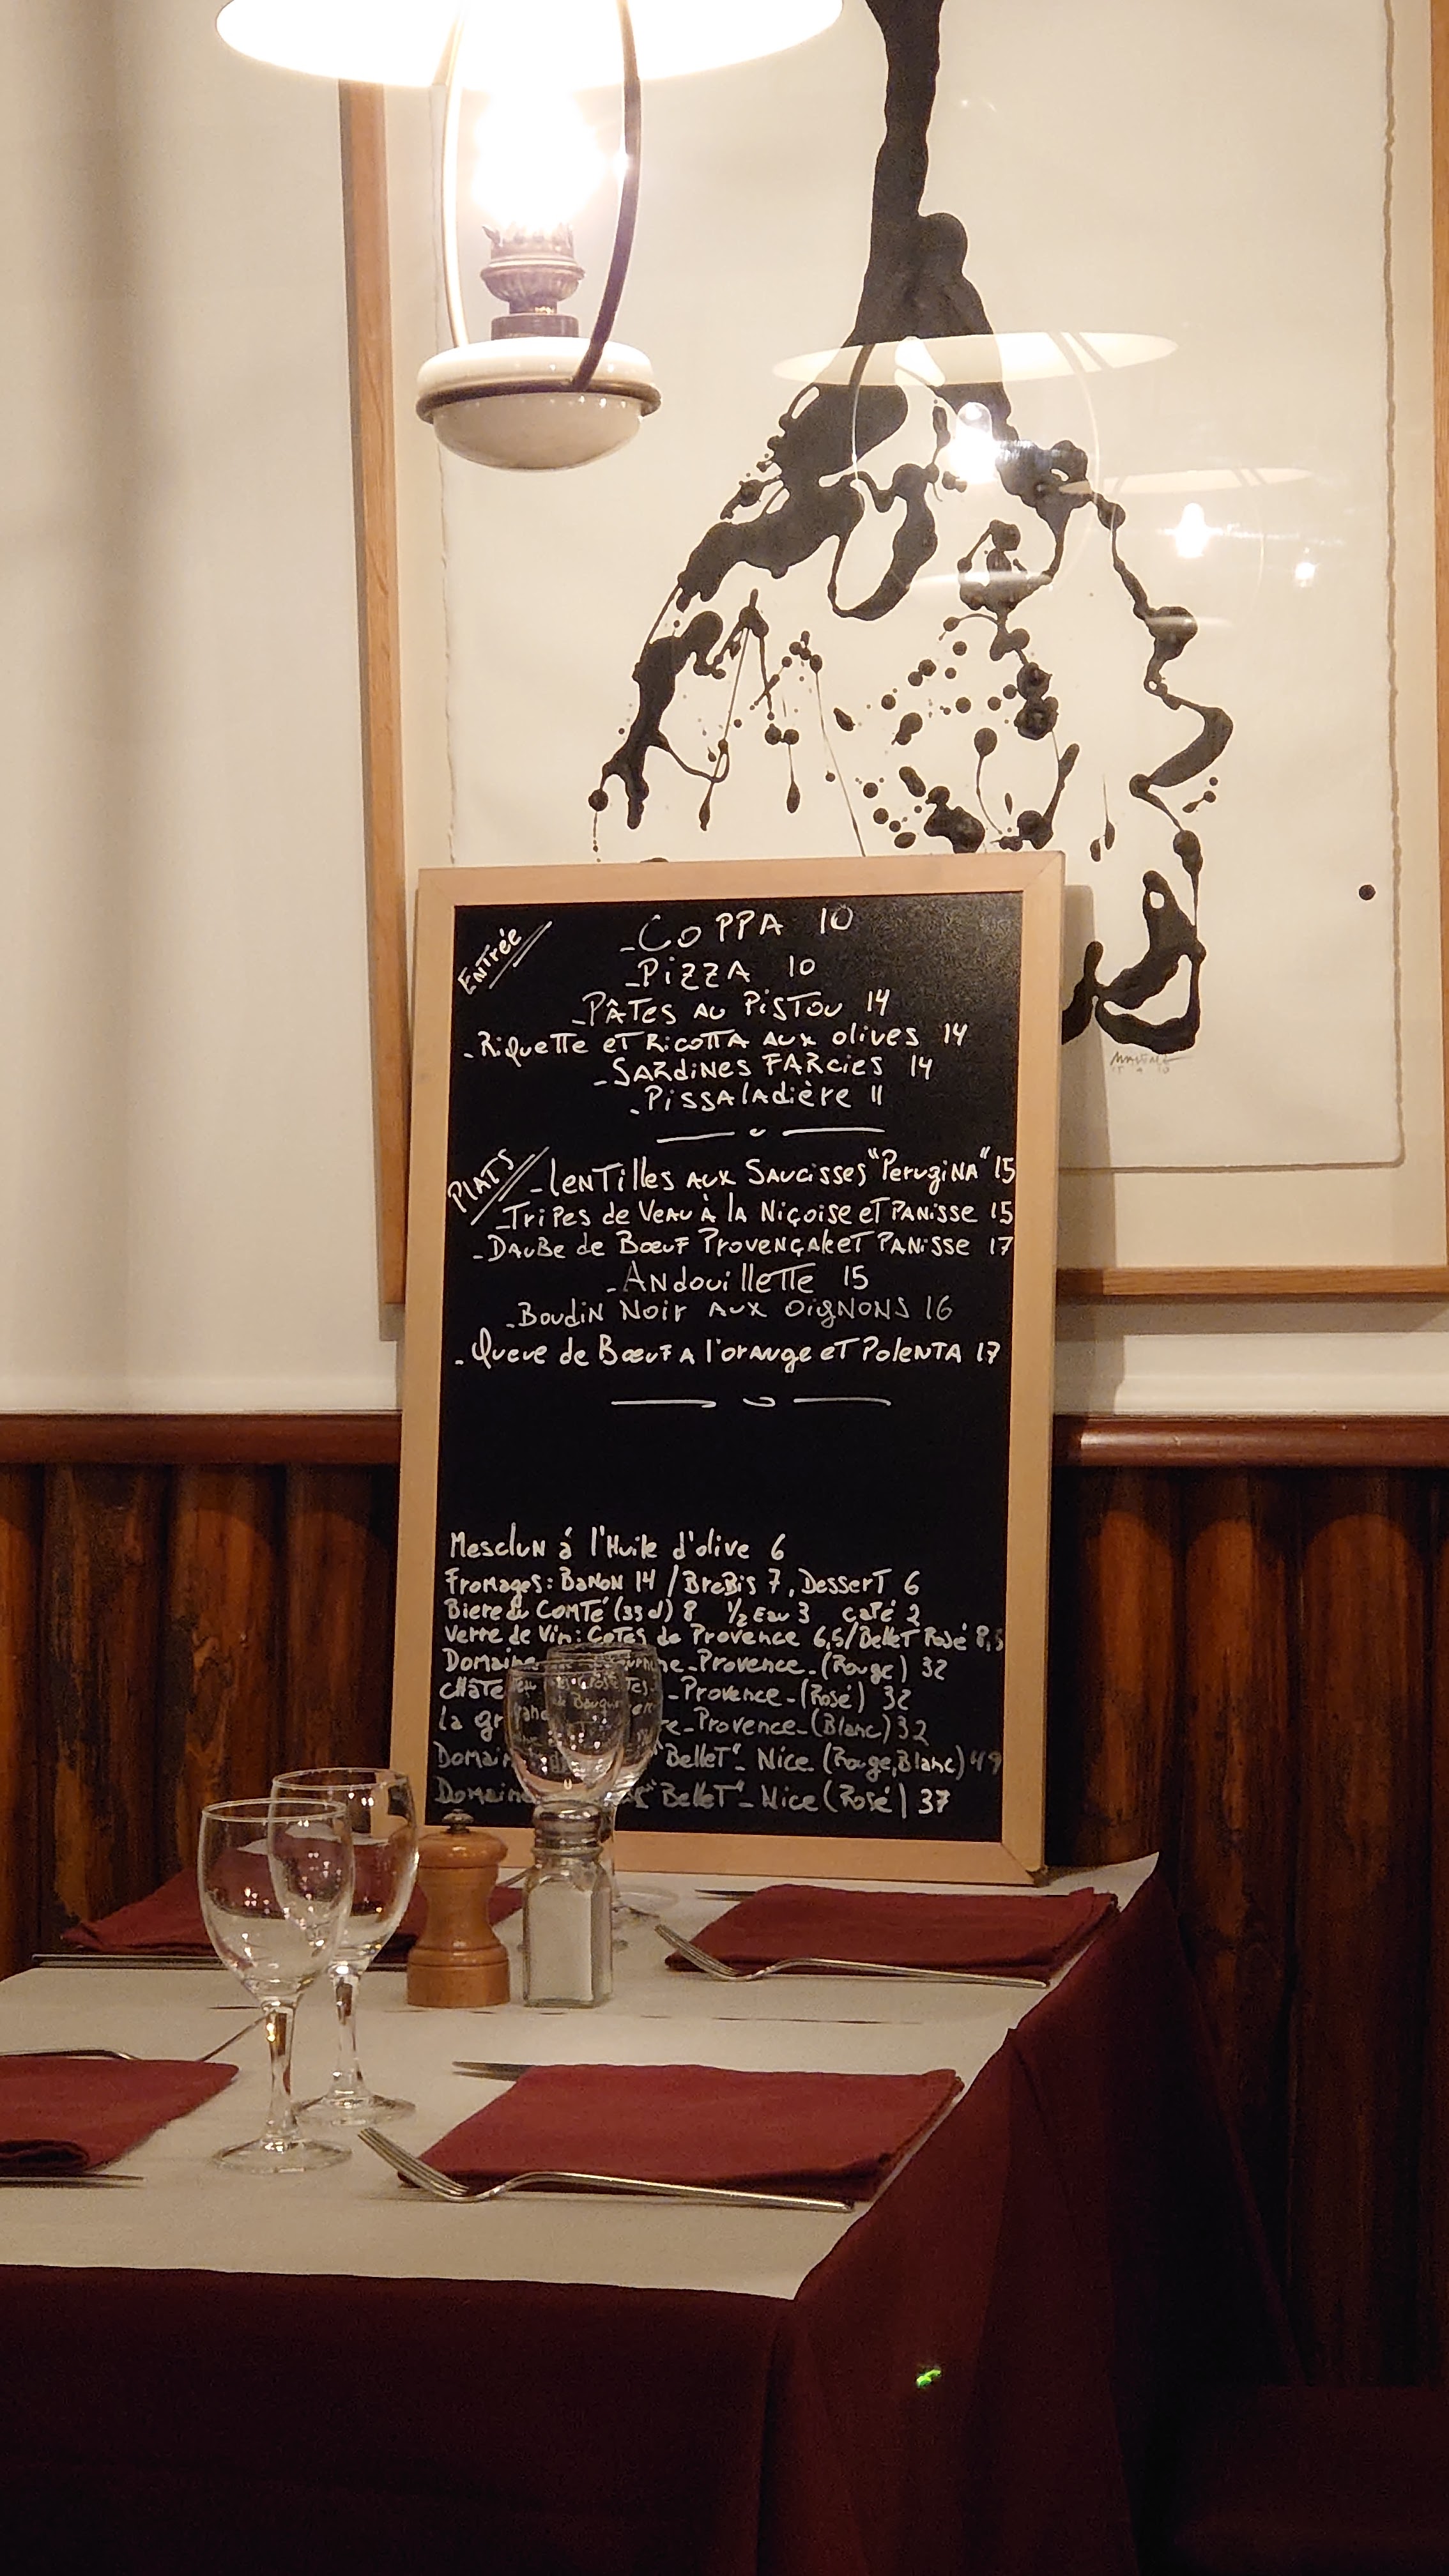 Entrée
- Coppa 10
- Pizza 10
- Pâtes au Pistou 14
- Riquette et Ricotta aux olives 14
- Sardines Farcies 14
- Pissaladière 11
Plats
- Lentilles aux Saucisses "Perugina" 15
- Tripes de Veau à la Niçoise et Panisse 15
- Daube de Bœuf Provençale et Panisse 17
- Andouillette 15
- Boudin Noir aux oignons 16
- Queue de Bœuf a l'orange et Polenta 17
Mesclun á l'Huile d'olive 6
Fromages: Banon 14 / Brebis 7, Dessert 6
Biere du Comté (33 cl) 8 1/2 Eau 3 café 2
Verre de Vin: Cotes de Provence 6,5/Bellet Rosé 8,5
Domaine Provence-(Rouge) 32
Provence-(Rosé) 32
la Provence-(Blanc) 32
Domaine "Bellet"- Nice (Rouge,Blanc) 49
Domaine "Bellet"- Nice (Rosé) 37